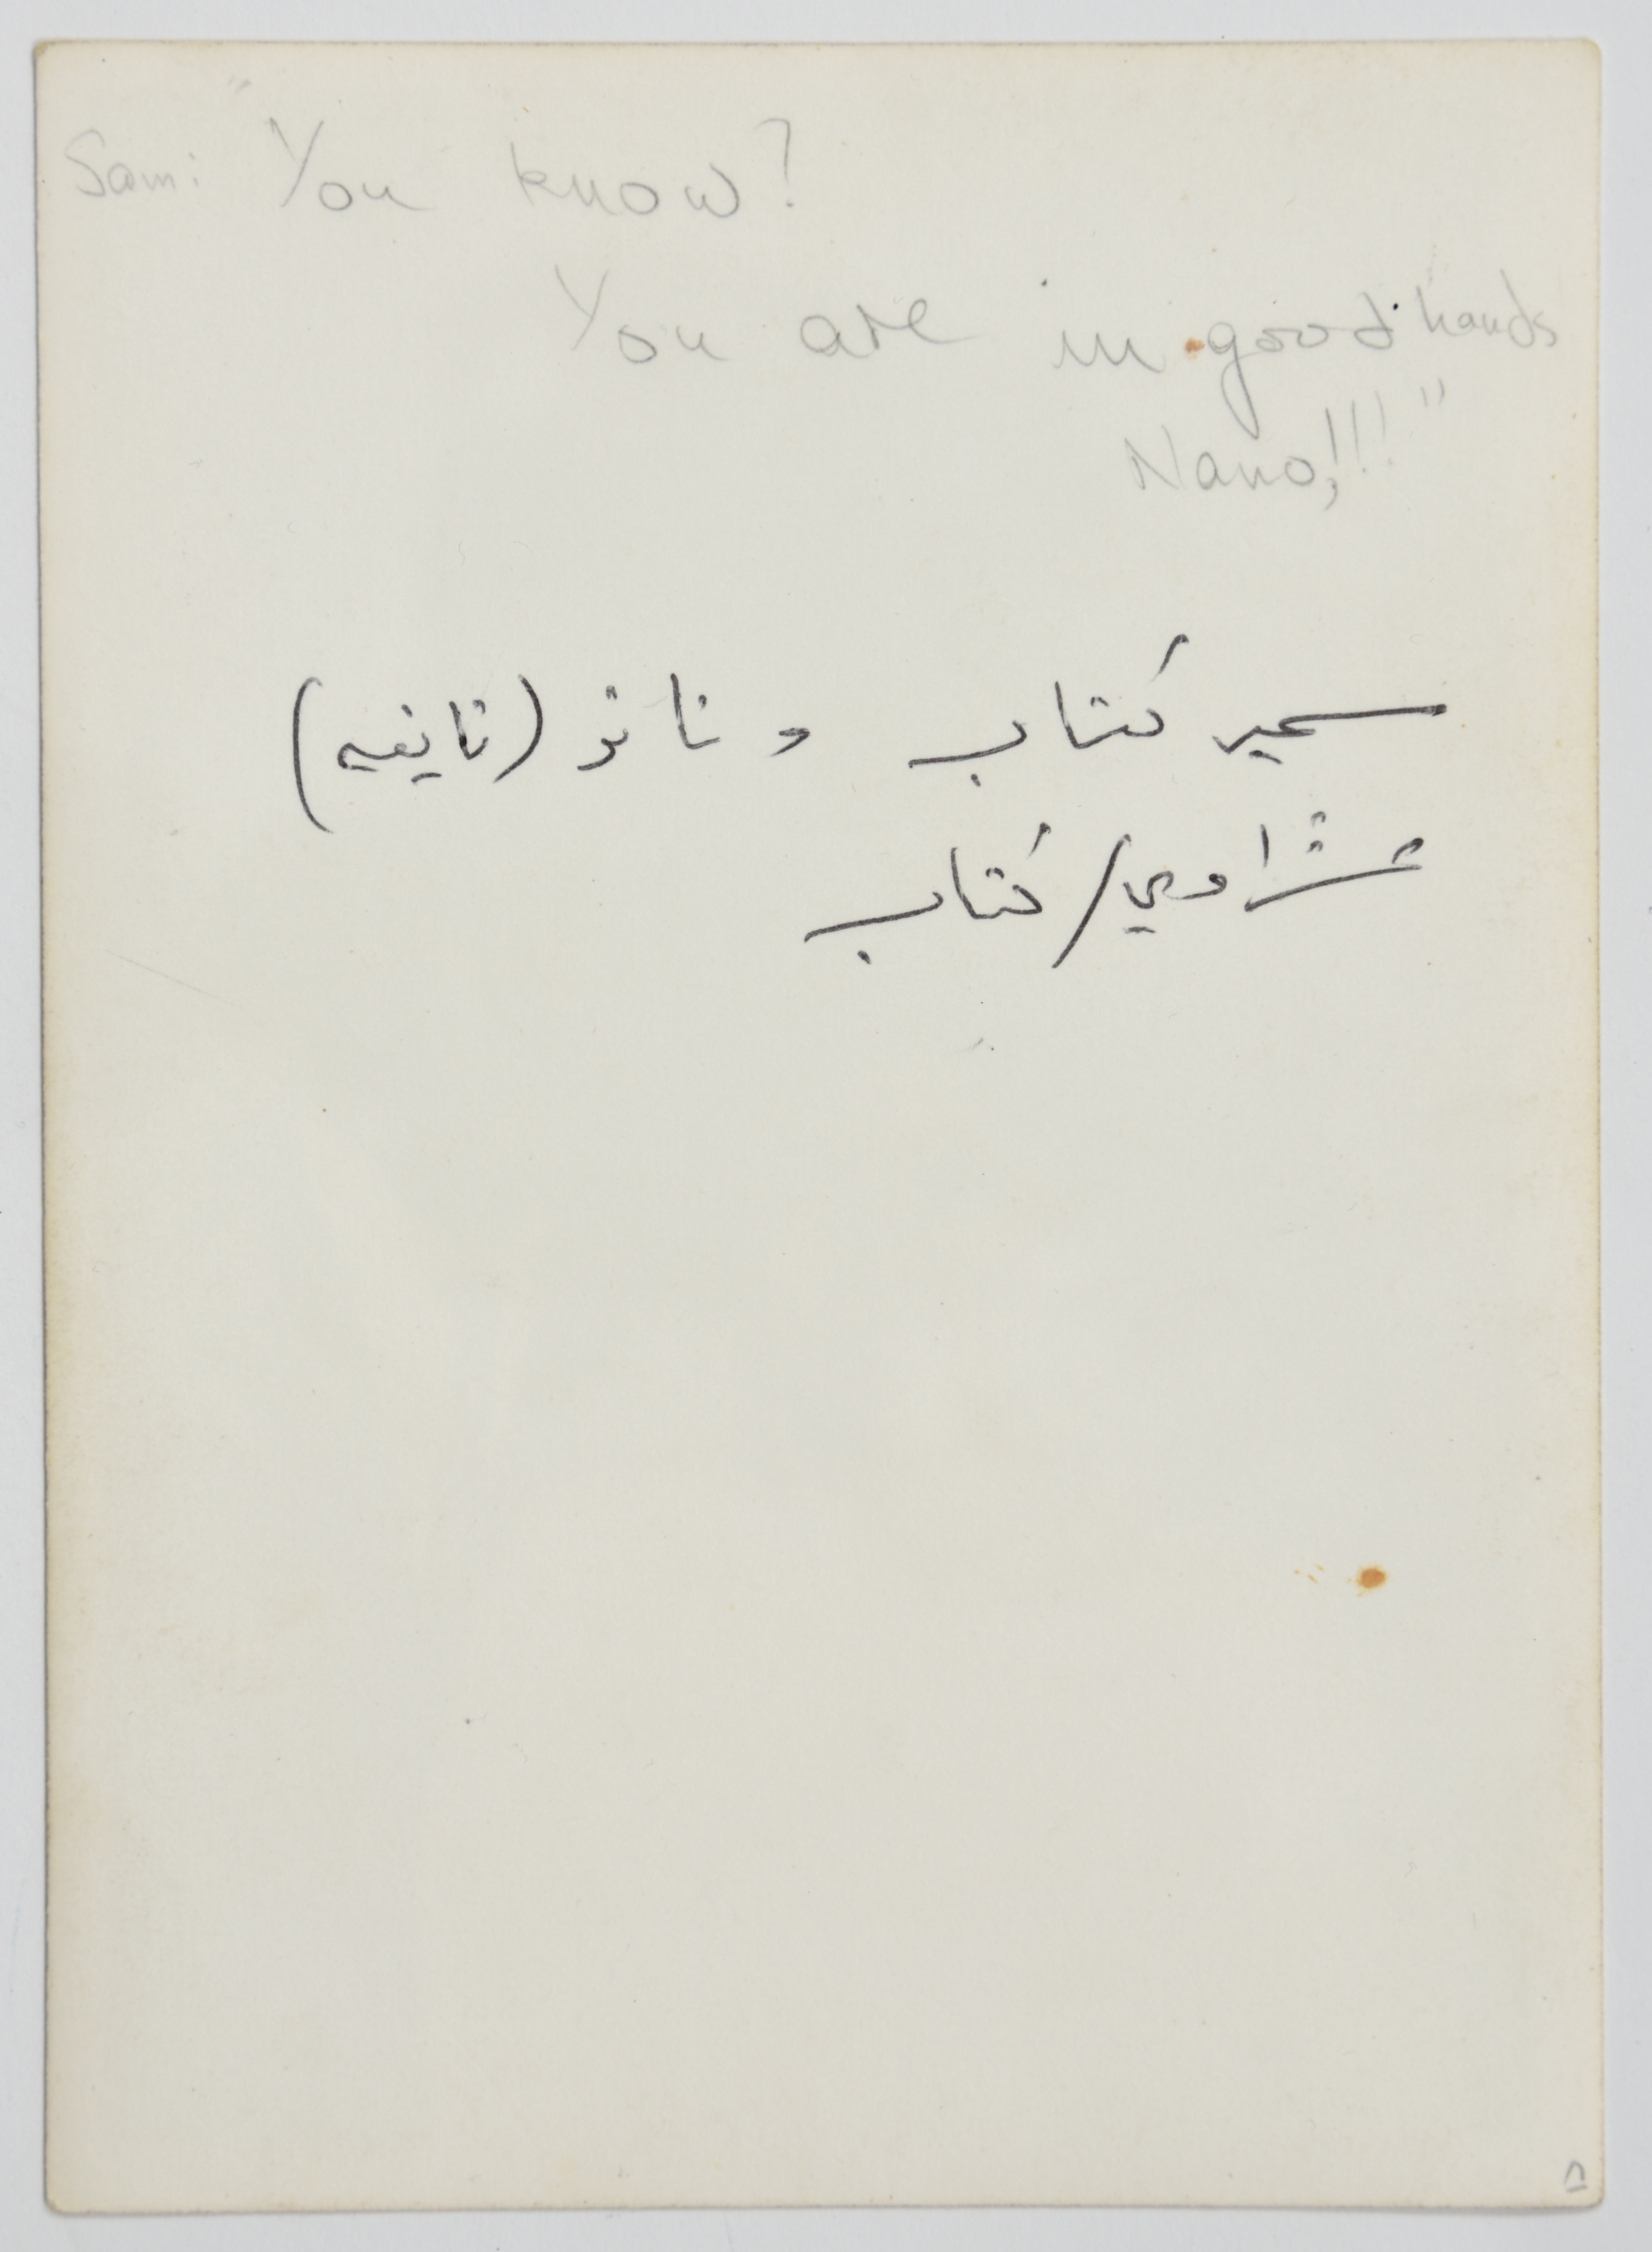 Sam: "You know?
You are in good hands
Nano,!!!"
سمير كتاب و نانو (نايفه)
عشراوي/كتاب